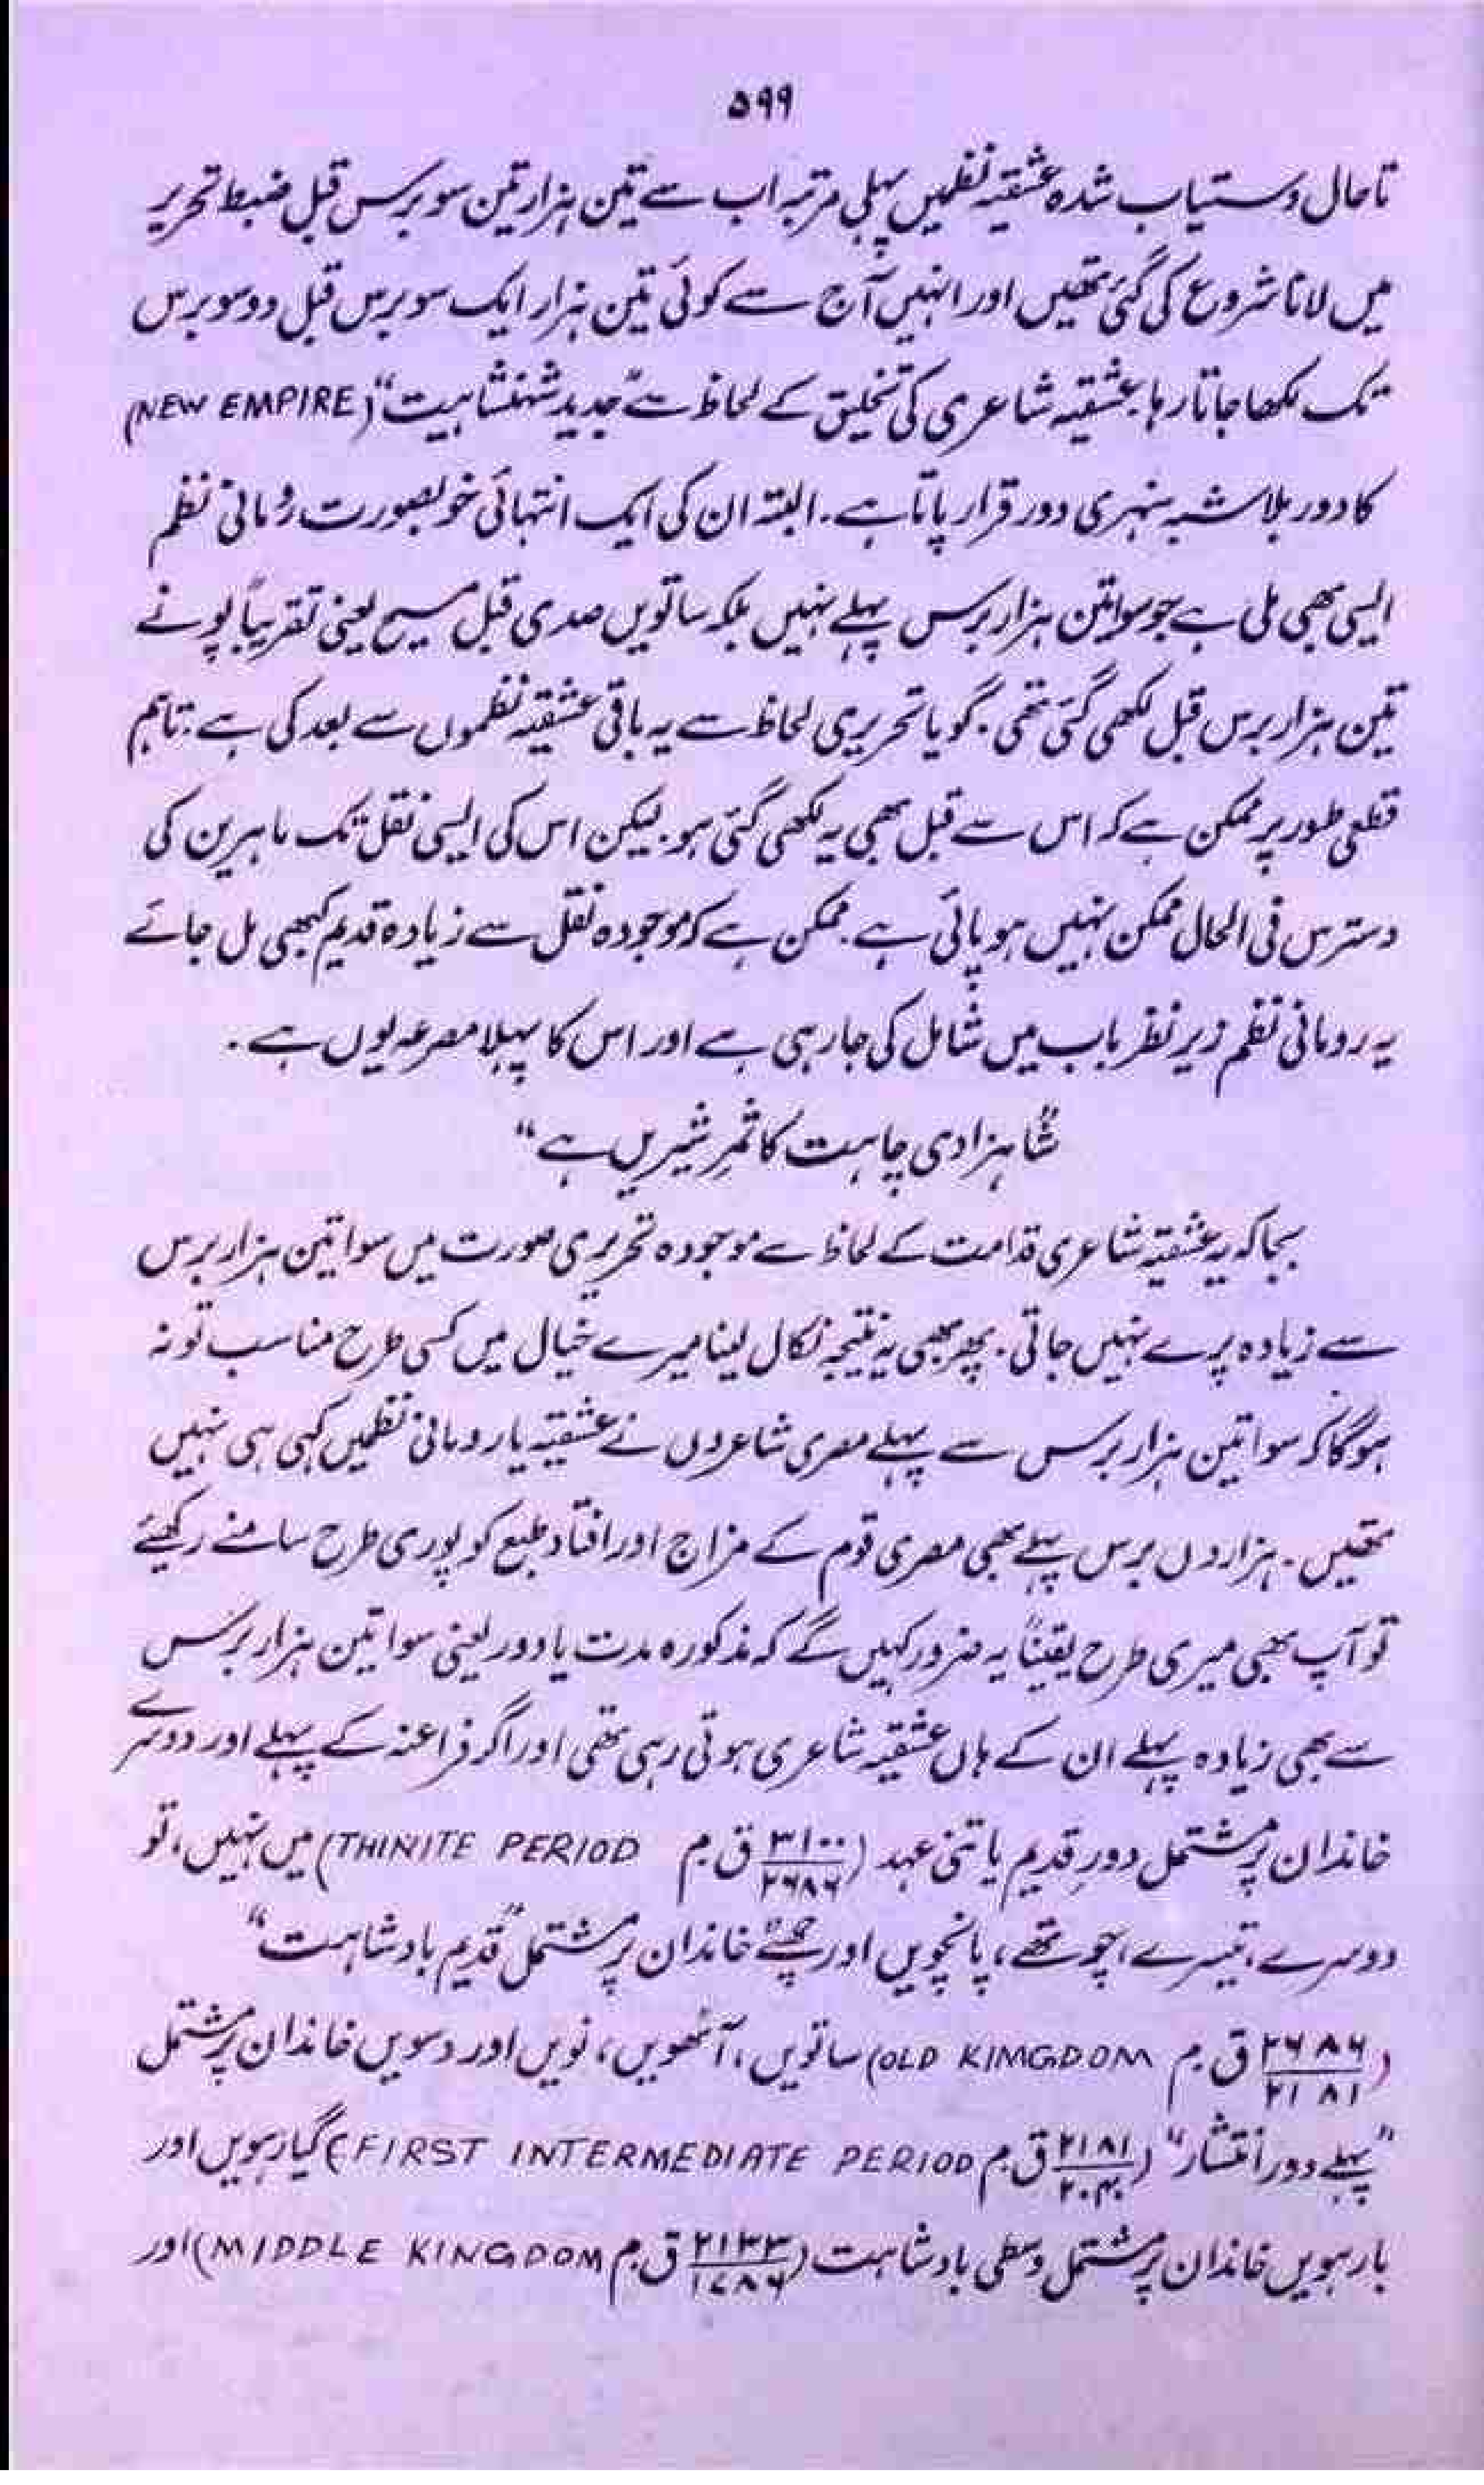 ۵۹۹
تاحال دستیاب شدہ عشقیہ نظمیں پہلی مرتبہ اب سے تین ہزار تین سو برس قبل ضبط تحریر
میں لانا شروع کی گئی تھیں اور انہیں آج سے کوئی تین ہزار ایک سو برس قبل دو سو برس
تک لکھا جاتا رہا۔ عشقیہ شاعری کی تخلیق کے لحاظ سے ”جدید شہنشاہیت“ (NEW EMPIRE)
کا دور بلاشبہ سنہری دور قرار پاتا ہے۔ البتہ ان کی ایک انتہائی خوبصورت رومانی نظم
ایسی بھی ملی ہے جو سوا تین ہزار برس پہلے نہیں بلکہ ساتویں صدی قبل مسیح یعنی تقریباً پونے
تین ہزار برس قبل لکھی گئی تھی۔ گویا تحریری لحاظ سے یہ باقی عشقیہ نظموں سے بعد کی ہے۔ تاہم
قطعی طور پر ممکن ہے کہ اس سے قبل بھی یہ لکھی گئی ہو۔ لیکن اس کی ایسی نقل تک ماہرین کی
دسترس فی الحال ممکن نہیں ہو پائی ہے۔ ممکن ہے کہ موجودہ نقل سے زیادہ قدیم کبھی مل جائے
یہ رومانی نظم زیر نظر باب میں شامل کی جا رہی ہے اور اس کا پہلا مصرعہ یوں ہے۔
”شاہزادی چاہت کا ثمرِ شیریں ہے“
بجا کہ یہ عشقیہ شاعری قدامت کے لحاظ سے موجودہ تحریری صورت میں سوا تین ہزار برس
سے زیادہ پرے نہیں جاتی۔ پھر بھی یہ نتیجہ نکال لینا میرے خیال میں کسی طرح مناسب تو نہ
ہوگا کہ سوا تین ہزار برس سے پہلے مصری شاعروں نے عشقیہ یا رومانی نظمیں کہی ہی نہیں
تھیں۔ ہزاروں برس پہلے بھی مصری قوم کے مزاج اور افتاد طبع کو پوری طرح سامنے رکھیئے
تو آپ بھی میری طرح یقیناً یہ ضرور کہیں گے کہ مذکورہ مدت یا دور یعنی سوا تین ہزار برس
سے بھی زیادہ پہلے ان کے ہاں عشقیہ شاعری ہوتی رہی تھی اور اگر فراعنہ کے پہلے اور دوسرے
خاندان پر مشتمل دورِ قدیم یا تنی عہد (۳۱۰۰/۲۶۸۶ ق م THINITE PERIOD) میں نہیں، تو
دوسرے، تیسرے، چوتھے، پانچویں اور چھٹے خاندان پر مشتمل ”قدیم بادشاہت“
(۲۶۸۶/۲۱۸۱ ق م OLD KIMGDOM) ساتویں، آٹھویں، نویں اور دسویں خاندان پر مشتمل
”پہلے دور انتشار“ (۲۱۸۱/۲۰۴۰ ق م FIRST INTERMEDIATE PERIOD) گیارہویں اور
بارہویں خاندان پر مشتمل وسطی بادشاہت (۲۱۳۳/۱۷۸۶ ق م MIDDLE KINGDOM) اور